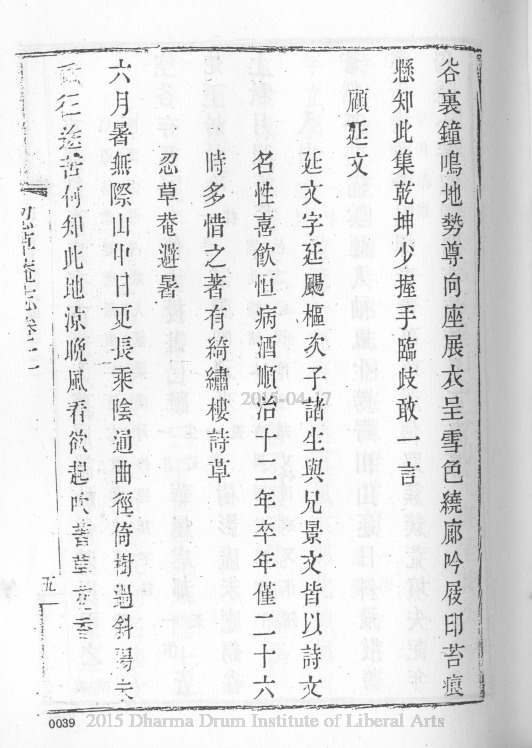 谷裏鐘鳴地勢尊向座展衣呈雪色繞廊吟屐印苔痕
懸知此集乾坤少握手臨歧敢一言
顧廷文
廷文字廷颺樞次子諸生與兄景文皆以詩文
名性喜飲恒病酒順治十二年卒年僅二十六
時多惜之著有綺繡樓詩草
忍草菴避暑
六月暑無際山中日更長乘陰通曲徑倚樹過斜陽
征途苦何知此地涼晚風看欲起吹
忍草菴志卷二
五
2015-04-17
0039
2015 Dharma Drum Institute of Liberal Arts